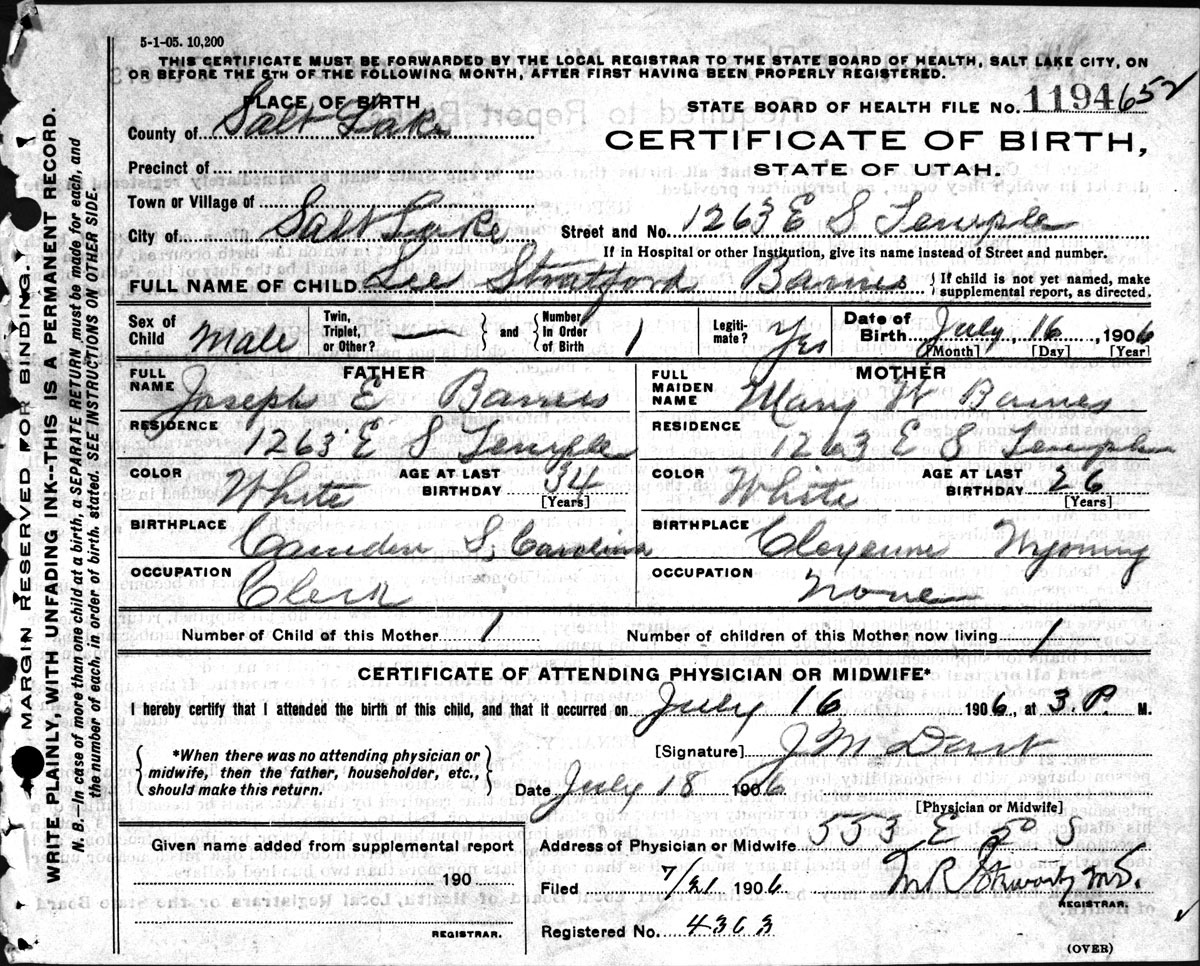 5-1-05. 10,200
THIS CERTIFICATE MUST BE FORWARDED BY THE LOCAL REGISTRAR TO THE STATE BOARD OF HEALTH, SALT LAKE CITY, ON
OR BEFORE THE 5TH OF THE FOLLOWING MONTH, AFTER FIRST HAVING BEEN PROPERLY REGISTERED.
PLACE OF BIRTH
STATE BOARD OF HEALTH FILE No. 1194652
County of Salt Lake
CERTIFICATE OF BIRTH,
Precinct of
STATE OF UTAH.
Town or Village of
City of Salt Lake Street and No. 1263 E S Temple
If in Hospital or other Institution, give its name instead of Street and number.
FULL NAME OF CHILD Lee Stratford Barnes { If child is not yet named, make supplemental report, as directed.
Sex of Child Male Twin, Triplet, or Other? — and Number in Order of Birth 1 Legiti-mate? Yes Date of Birth July, 16, 1906
[Month] [Day] [Year]
FATHER MOTHER
FULL NAME Joseph E Barnes FULL MAIDEN NAME Mary W Barnes
RESIDENCE 1263 E S Temple RESIDENCE 1263 E S Temple
COLOR White AGE AT LAST BIRTHDAY 34 [Years] COLOR White AGE AT LAST BIRTHDAY 26 [Years]
BIRTHPLACE Camden S. Carolina BIRTHPLACE Cheyenne Wyoming
OCCUPATION Clerk OCCUPATION None
Number of Child of this Mother 1 Number of children of this Mother now living 1
CERTIFICATE OF ATTENDING PHYSICIAN OR MIDWIFE*
I hereby certify that I attended the birth of this child, and that it occurred on July 16 1906, at 3.P. M.
*When there was no attending physician or
midwife, then the father, householder, etc.,
should make this return.
[Signature] J M Dart
Date July 18 1906
[Physician or Midwife]
Given name added from supplemental report
190
REGISTRAR.
Address of Physician or Midwife 553 E 50 S
Filed 7/21 1906
REGISTRAR.
Registered No. 4363
(OVER)
MARGIN RESERVED FOR BINDING.
WRITE PLAINLY, WITH UNFADING INK--THIS IS A PERMANENT RECORD.
N. B.—In case of more than one child at a birth, a SEPARATE RETURN must be made for each, and
the number of each, in order of birth, stated. SEE INSTRUCTIONS ON OTHER SIDE.